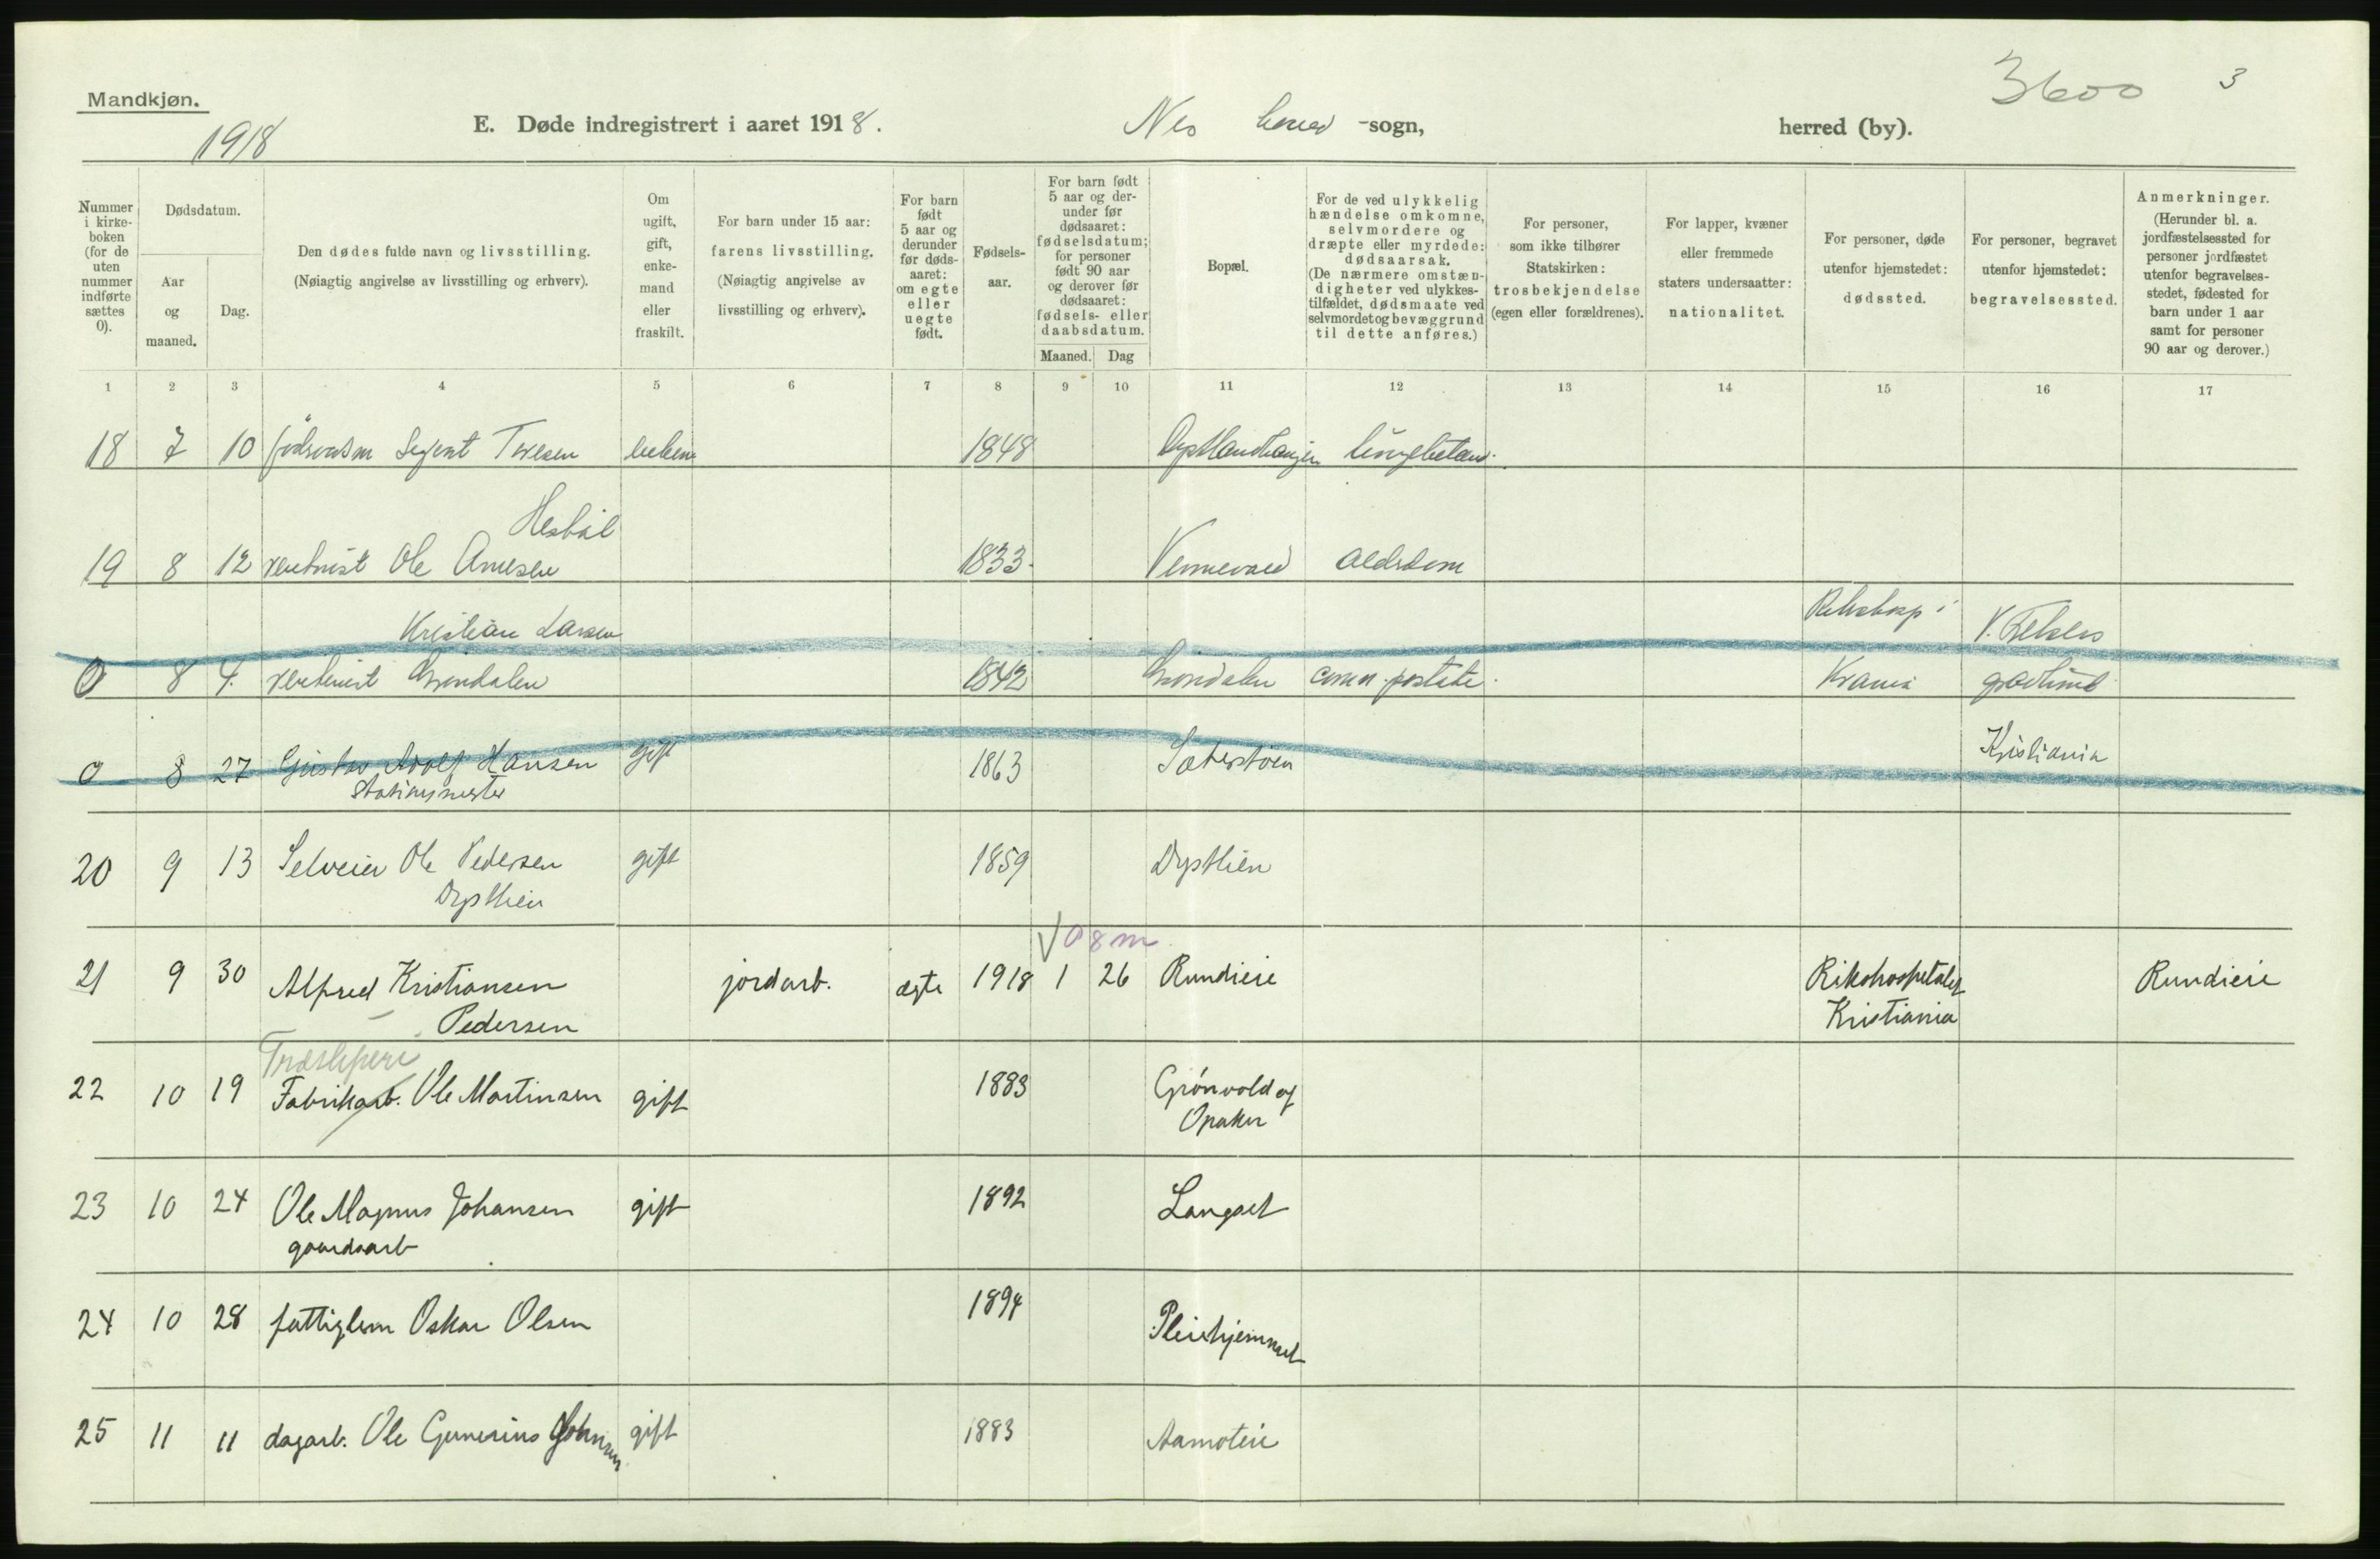 Mandkjøn.
1918
E. Døde indregistrert i aaret 1918.
Nes herred -sogn,
herred (by).
3600
3
Nummer i kirke-boken (for de uten nummer indførte sættes 0).
Dødsdatum.
Aar og maaned.
Dag.
Den dødes fulde navn og livsstilling.
(Nøiagtig angivelse av livsstilling og erhverv).
Om ugift, gift, enke-mand eller fraskilt.
For barn under 15 aar: farens livsstilling.
(Nøiagtig angivelse av livsstilling og erhverv).
For barn født 5 aar og derunder før døds-aaret: om egte eller uegte født.
Fødsels-aar.
For barn født 5 aar og der-under før dødsaaret: fødselsdatum; for personer født 90 aar og derover før dødsaaret: fødsels- eller daabsdatum.
Maaned.
Dag
Bopæl.
For de ved ulykkelig hændelse omkomne, selvmordere og dræpte eller myrdede: dødsaarsak.
(De nærmere omstæn-digheter ved ulykkes-tilfældet, dødsmaate ved selvmordet og bevæggrund til dette anføres.)
For personer, som ikke tilhører Statskirken: trosbekjendelse (egen eller forældrenes).
For lapper, kvæner eller fremmede staters undersaatter: nationalitet.
For personer, døde utenfor hjemstedet: dødssted.
For personer, begravet utenfor hjemstedet: begravelsessted.
Anmerkninger.
(Herunder bl. a. jordfæstelsessted for personer jordfæstet utenfor begravelses-stedet, fødested for barn under 1 aar samt for personer 90 aar og derover.)
1 2 3 4 5 6 7 8 9 10 11 12 13 14 15 16 17
18 7 10 1848
19 8 12 Ole 1833 alderdom
Kristian Larsen
0 8 4 1842 Krania
0 8 27 Gustav Adolf Hansen gift 1863 Kristiania
Stationsmester
20 9 13 Selveier Ole Pedersen gift 1859 Dysthien
Dysthien
0 8 m
21 9 30 Alfred Kristiansen jordarb. egte 1918 1 26 Rundieie Rikshospitalet Rundieie
Pedersen Kristiania
Træsliperi
22 10 19 Fabrikarb. Ole Martinsen gift 1883 Grönvold af
Opaker
23 10 24 Ole Magnus Johansen gift 1892 Langset
gaardsarb
24 10 28 fattiglem Oskar Olsen 1894 Pleiehjemmet
25 11 11 dagarb. Ole Gunerius Johnsen gift 1883 Aamoteie